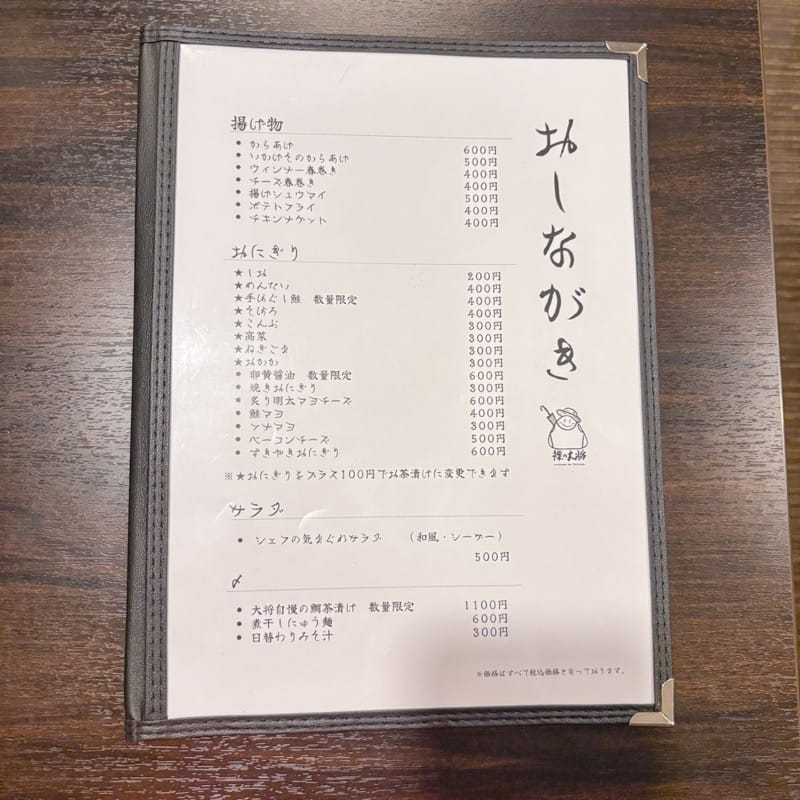 おしながき
揚げ物
● からあげ 600円
● いかげそのからあげ 500円
● ウィンナー春巻き 400円
● チーズ春巻き 400円
● 揚げシュウマイ 500円
● ポテトフライ 400円
● チキンナゲット 400円
おにぎり
★しお 200円
★めんたい 400円
★手ほぐし鮭 数量限定 400円
★そぼろ 400円
★こんぶ 300円
★高菜 300円
★ねぎごま 300円
★おかか 300円
● 卵黄醤油 数量限定 600円
● 焼きおにぎり 300円
● 炙り明太マヨチーズ 600円
● 鮭マヨ 400円
● ツナマヨ 300円
● ベーコンチーズ 500円
● すきやきおにぎり 600円
※★おにぎりをプラス100円でお茶漬けに変更できます
サラダ
● シェフの気まぐれサラダ (和風・シーサー)
500円
〆
● 大将自慢の鯛茶漬け 数量限定 1100円
● 煮干しにゅう麺 600円
● 日替わりみそ汁 300円
※価格はすべて税込価格となっております。
裸の大将